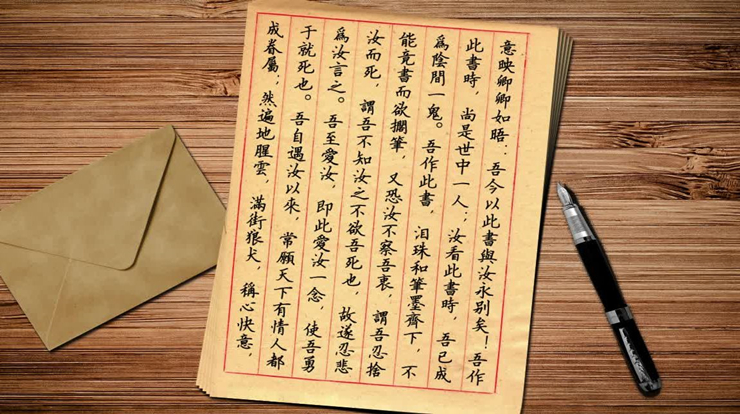 意映卿卿如晤：吾今以此書與汝永別矣！吾作
此書時，尚是世中一人；汝看此書時，吾已成
爲陰間一鬼。吾作此書，泪珠和筆墨齊下，不
能竟書而欲擱筆，又恐汝不察吾衷，謂吾忍捨
汝而死，謂吾不知汝之不欲吾死也，故遂忍悲
爲汝言之。吾至愛汝，即此愛汝一念，使吾勇
于就死也。吾自遇汝以來，常願天下有情人都
成眷屬；然遍地腥雲，滿街狼犬，稱心快意，